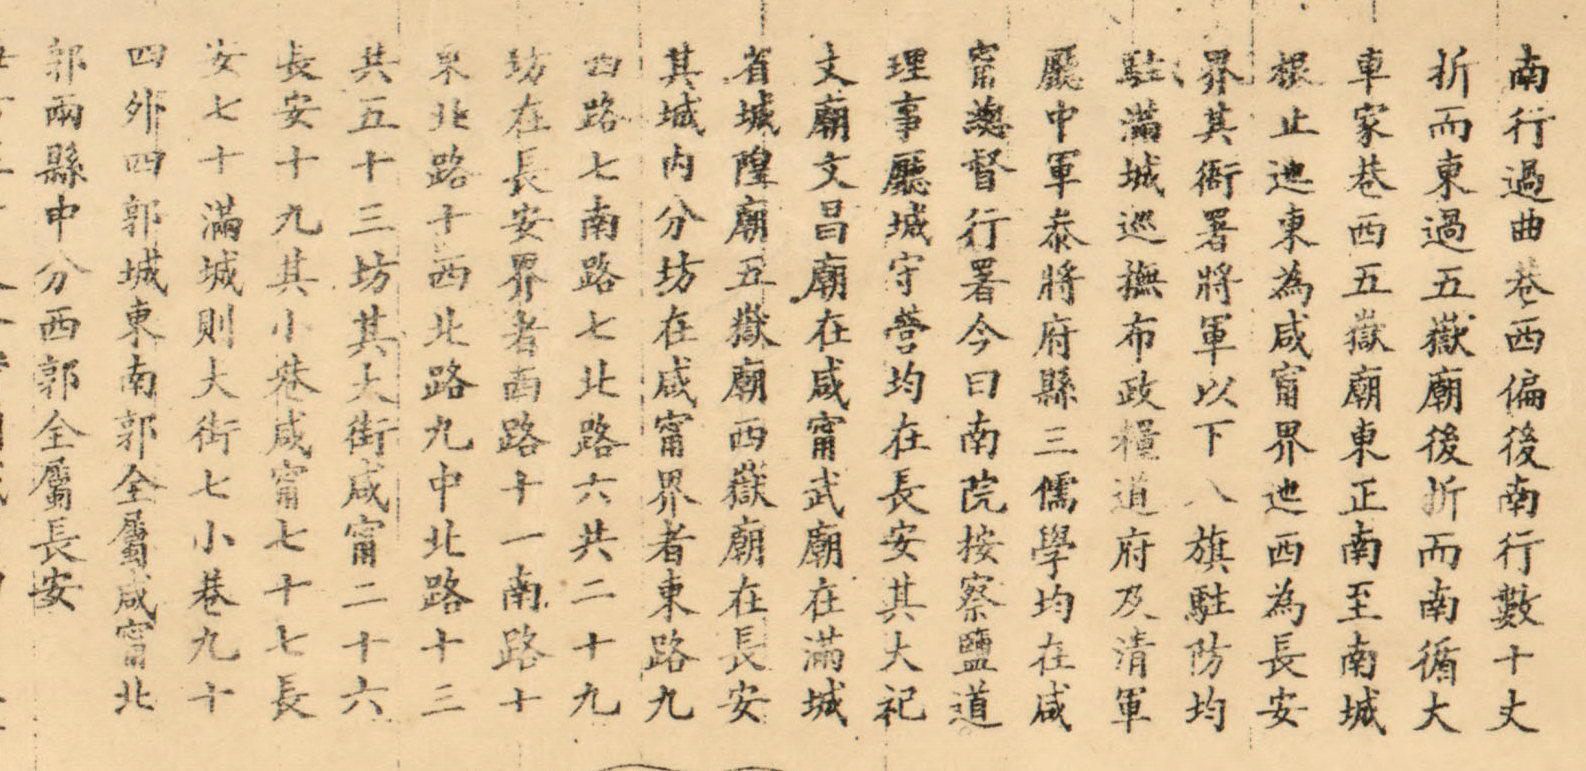 南行過曲巷西偏後南行數十丈
折而東過五嶽廟後折而南循大
車家巷西五嶽廟東正南至南城
根止迆東為咸甯界迆西為長安
界其衙署將軍以下八旗駐防均
駐滿城巡撫布政糧道府及清軍
廳中軍叅將府縣三儒學均在咸
甯總督行署今曰南院按察鹽道
理事廳城守營均在長安其大祀
文廟文昌廟在咸甯武廟在滿城
省城隍廟五嶽廟西嶽廟在長安
其城內分坊在咸甯界者東路九
西路七南路七北路六共二十九
坊在長安界者西路十一南路十
東北路十西北路九中北路十三
共五十三坊其大街咸甯二十六
長安十九其小巷咸甯七十七長
安七十滿城則大街七小巷九十
四外四郭城東南郭全屬咸甯北
郭兩縣中分西郭全屬長安